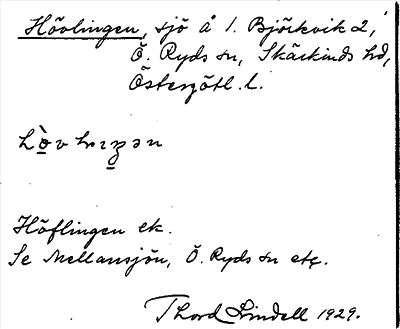 Hövlingen, sjö å 1. Björkvik 2,
Ö. Ryds sn, Skärkinds hd,
Östergötl. l.
Höflingen ek.
Se Mellansjön, Ö. Ryds sn etc.
Thord Lindell 1929.